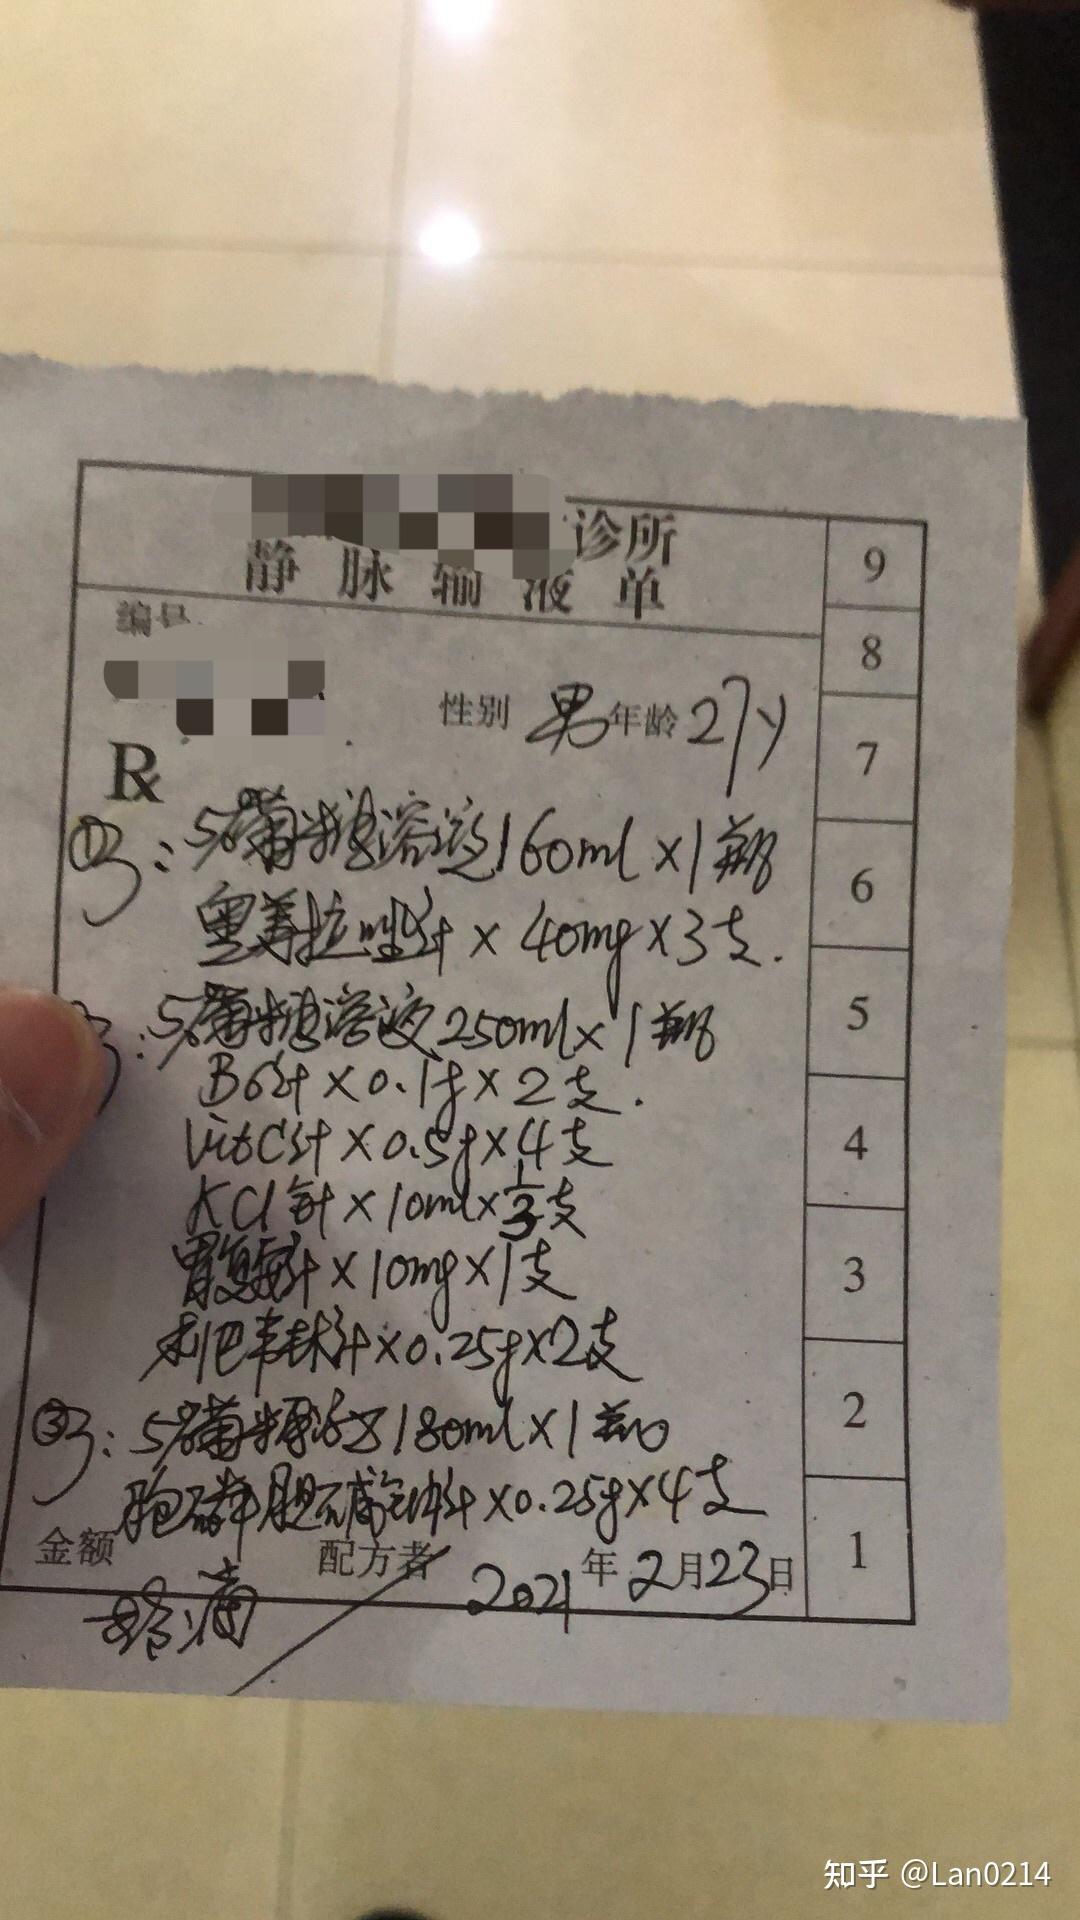 诊所
静脉输液单
编号
性别 男 年龄 27y
R
①号: 5%葡萄糖溶液160ml×1瓶
奥美拉唑针×40mg×3支.
号: 5%葡萄糖溶液250ml×1瓶
B6针×0.1g×2支.
VitC针×0.5g×4支
KCl针×10ml×1/3支
胃复安针×10mg×1支
利巴韦林针×0.25g×2支
③号: 5%葡萄糖溶液180ml×1瓶
胞磷胆碱钠针×0.25g×4支
金额 配方者 2021年2月23日
9
8
7
6
5
4
3
2
1
知乎 @Lan0214